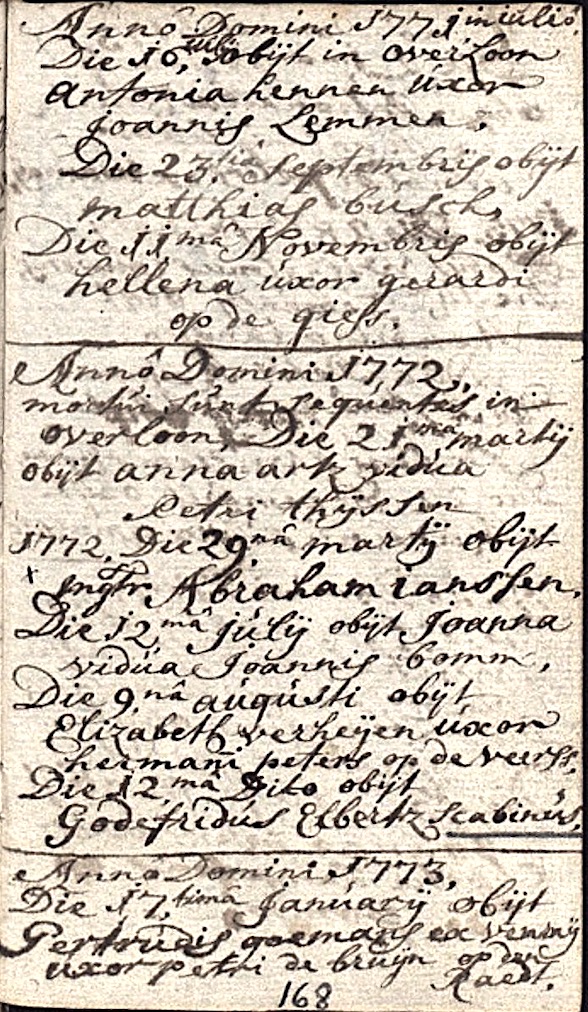 Anno Domini 1771 in iulio
Die 16, july obijt in overloon
Antonia hennen uxor
Joannis Lemmen.
Die 23 tiâ septembris obijt
matthias busch,
Die 11mâ Novembris obijt
hellena uxor gerardi
op de giess.
Annô Domini 1772,
mortui sunt sequentes in
overloon, Die 21 martij
obijt anna artz vidua
Petri thijssen
1772. Die 29nâ martij obijt
x mgtr. Abraham ianssen.
Die 12mâ julij obijt Joanna
vidua Joannis bomm,
Die 9nâ augusti obijt
Elizabeth verheijen uxor
hermani peters op de veerss,
Die 12mâ Dito obijt
Godefridus Elbertz scabinus,
Anno Domini 1773,
Die 17timâ Januarij obijt
Gertrudis goemans ex venraij
uxor petri de bruijn op den
Raedt.
168